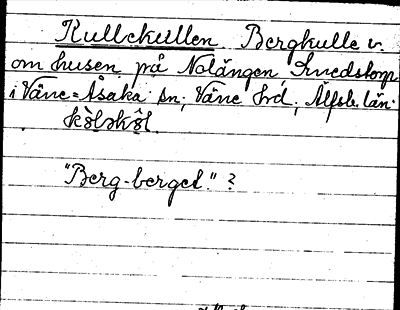 Kullekullen Bergkulle v.
om husen på Nolängen Smedstorp
i Väne-Åsaka sn, Väne hrd, Älfsb. län.
"Berg-berget." ?